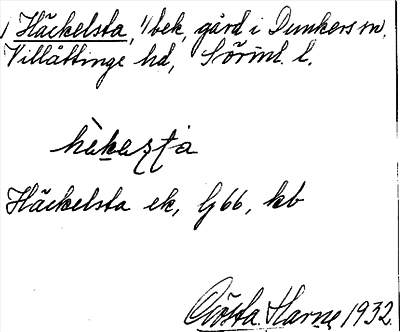 Häckelsta, 1/bek, gård i Dunkers sn,
Villåttinge hd, Sörml. l.
hèkesta
Häckelsta ek, G66, kb
Gösta Harne 1932.